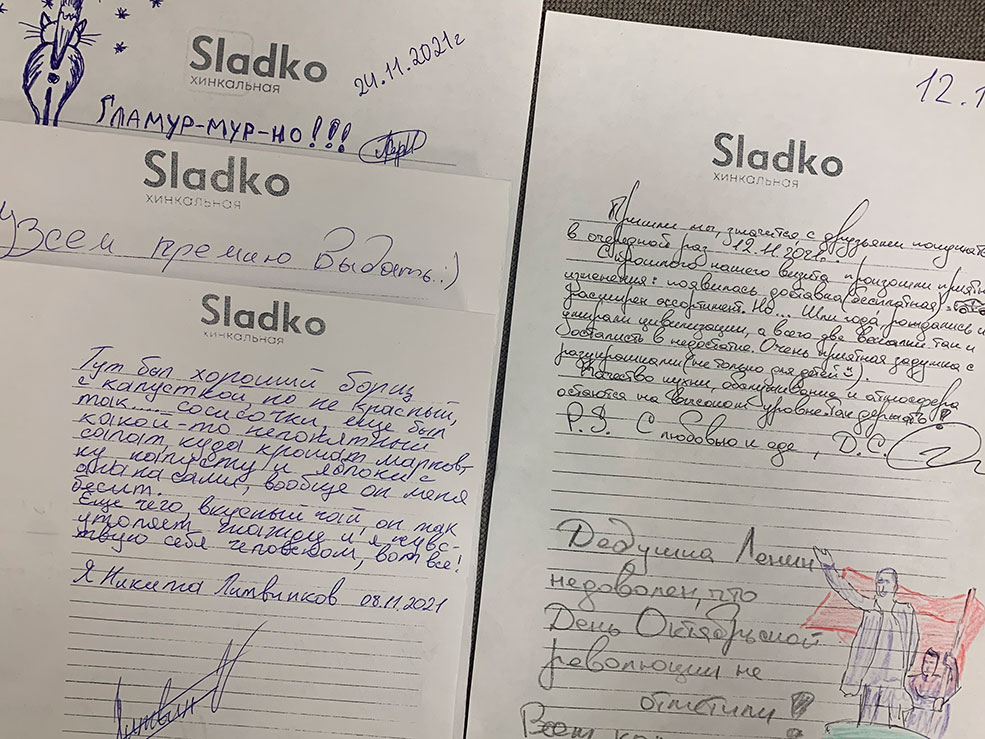 Sladko
хинкальная
24.11.2021г
ГЛАМУР-МУР-НО!!!
Sladko
хинкальная
Узсем премию выдать:)
Sladko
хинкальная
Тут был хороший борщ
с капусткой но не красный,
так.... сосисочки, еще был
какой-то непонятный
салат куда крошат марков-
ку, капусту и яблоки с
ананасами, вообще он меня
бесит.
Еще чего, вкусный чай, он так
утоляет жажду и я чувс-
твую себя человеком, вот все!
Я Никита Литвинков 08.11.2021
12.1
Sladko
хинкальная
Пришли мы, значится с друзьями
в очередной раз 12.11.2021г.
С прошлого нашего визита произошли
изменения: появилась доставка (бесплатная)
расширен ассортимент. Но... Шли года, рождались и
умирали цивилизации, а всего две так и
остались в недостатке. Очень приятная задумка с
разукрашками (не только для детей").
Качество кухни, обслуживание и атмосфера
остаются на высоком уровне. Так держать!
P.S. С любовью к еде, Д.С.
Дедушка Ленин
недоволен, что
День Октябрьской
революции не
отметили!
Всем